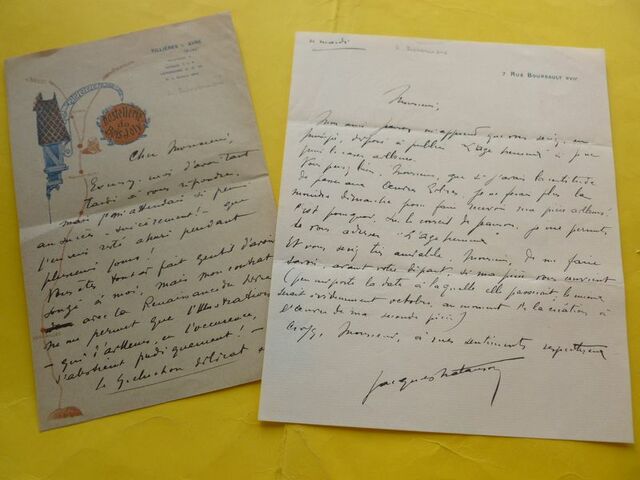 TILLIÈRES s/ AVRE
Hostellerie
du
Bois Joly
Cher Monsieur,
Excusez-moi d'avoir tant
tardé à vous répondre,
mais j'm'attendais si peu
au succès - sincèrement! - que
j'en suis resté ahuri pendant
plusieurs jours!
Vous êtes tout à fait gentil d'avoir
songé à moi, mais mon contrat
avec la Renaissance du Livre
ne me permet que l'Illustration
- qui d'ailleurs, en l'occurence,
s'abstient pudiquement! -
Le Greluchon délicat
mardi
7 RUE BOURSAULT XVIIe
Monsieur,
Mon ami m'apprend que vous seriez, en
principe, disposé à publier "L'Age heureux" à
Vous pensez bien, Monsieur, que si j'avais la certitude
de passer aux Oeuvres Libres, je ne ferais plus la
moindre démarche pour faire recevoir ma pièce ailleurs.
C'est pourquoi, sur le conseil de je me permets
de vous adresser "L'Age heureux"
Et vous seriez très aimable, Monsieur, de me faire
savoir, avant votre départ, si ma pièce vous convient
(peu importe la date à laquelle elle passerait, le mieux
serait évidemment octobre, au moment de la création à
l'Oeuvre de ma seconde pièce)
Croyez, Monsieur, à mes sentiments respectueux
Jacques Natanson